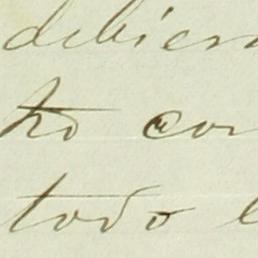 debiera
to con
todo e